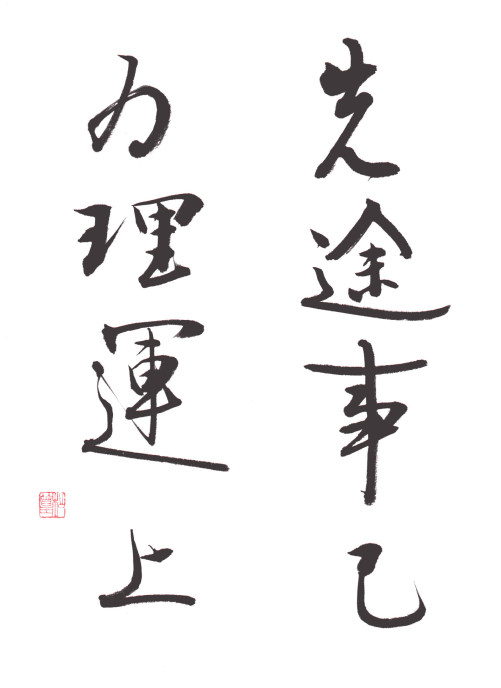 先途事己
力理運上